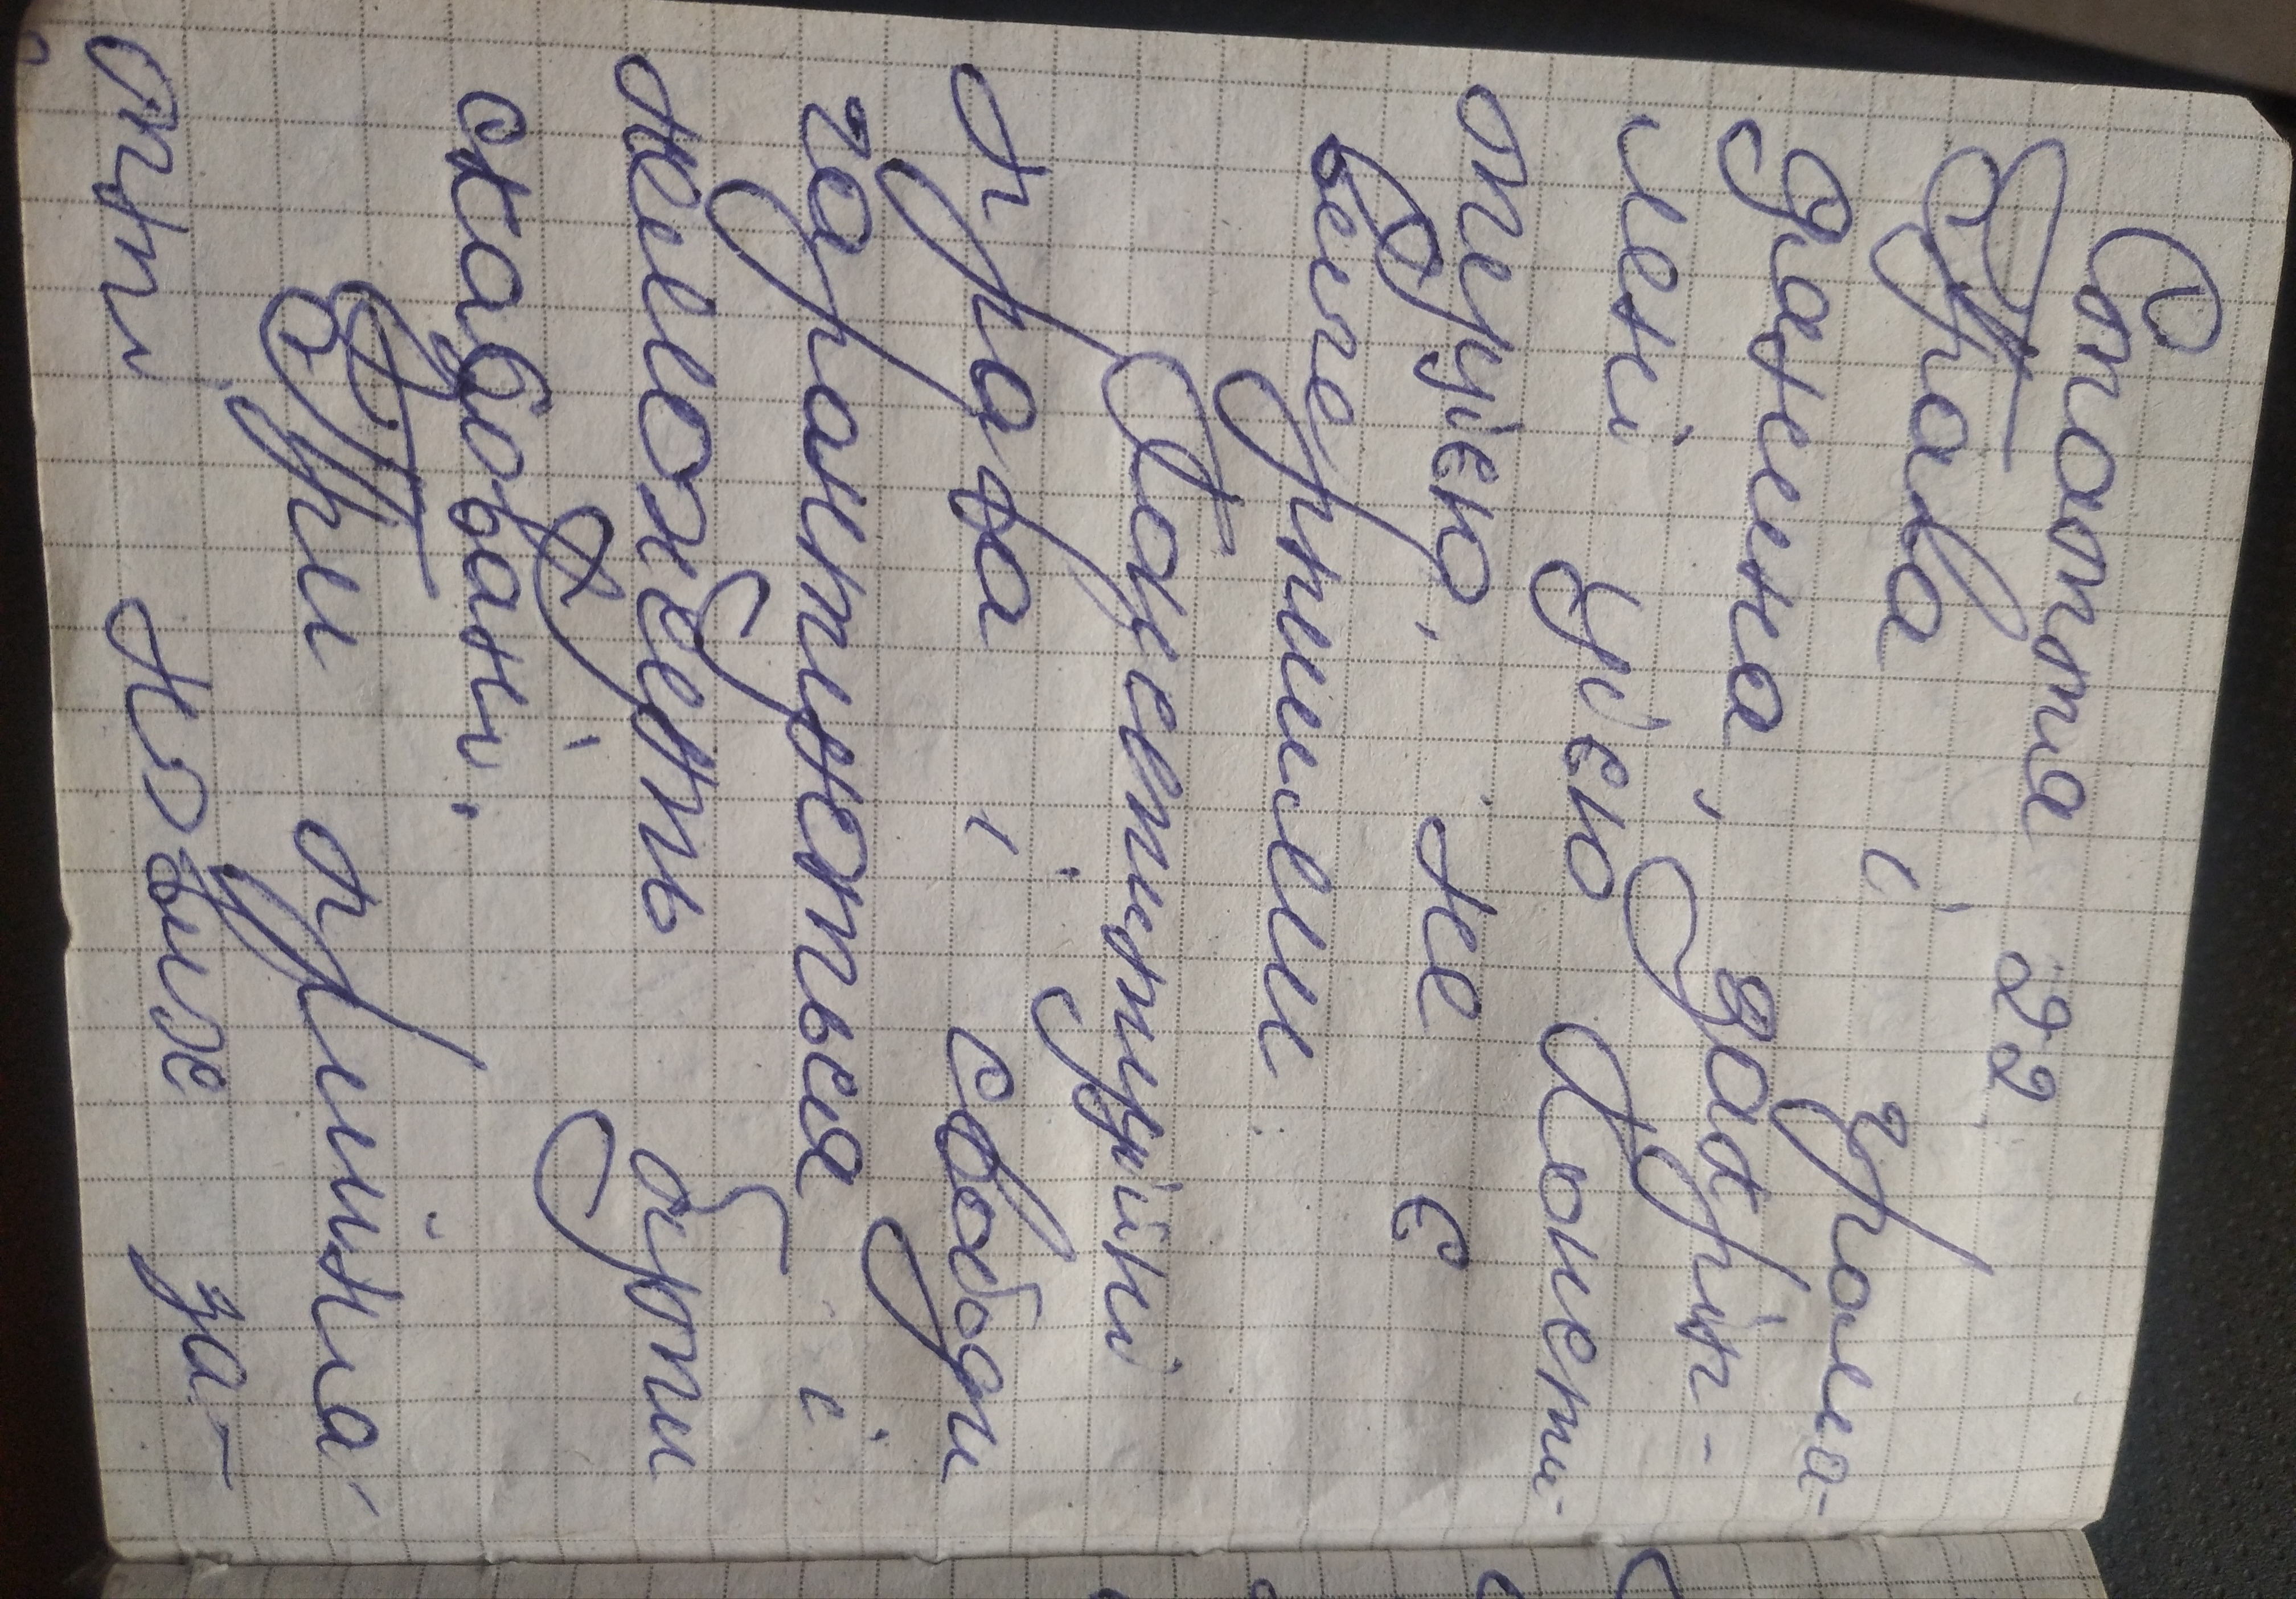 Стаття 22
Права і грома-
дянина, закріп-
лені цією Консти-
туцією, не є
вичерпними
Конституційні
права і свободи
гарантуються і
не можуть бути
скасовані.
При прийня-
тті нових за-